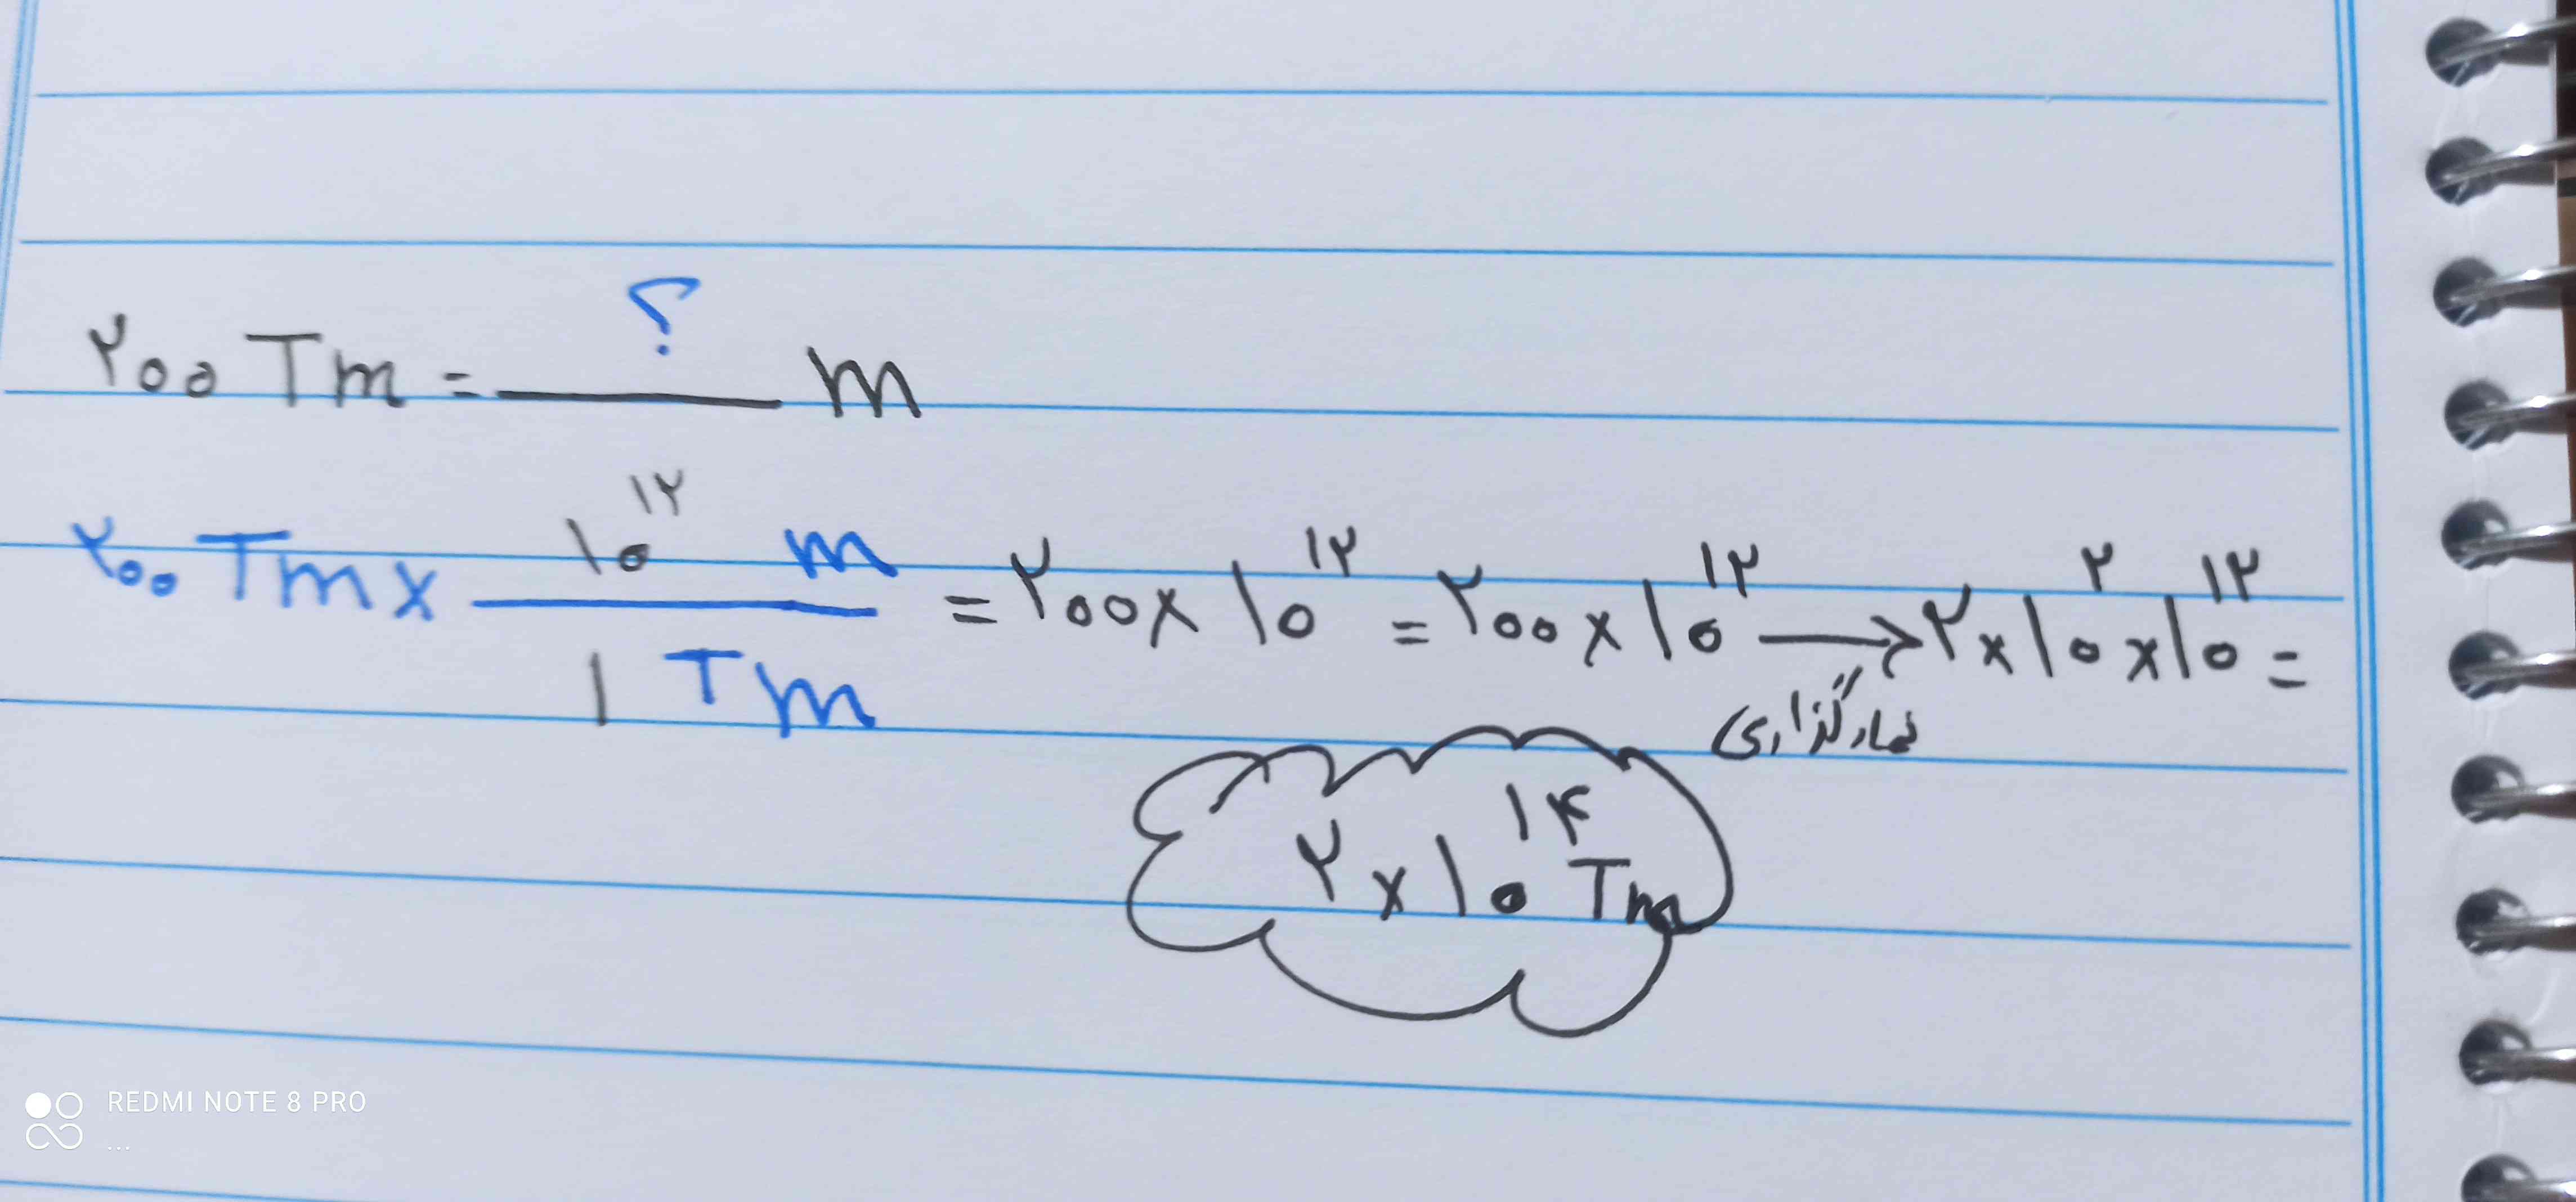 ۲۰۰ Tm = ؟ m
۲۰۰ Tm × ۱۰^۱۲ m / ۱ Tm = ۲۰۰ × ۱۰^۱۲ = ۲۰۰ × ۱۰^۱۲ → ۲ × ۱۰^۲ × ۱۰^۱۲ =
نمادگزاری
۲ × ۱۰^۱۴ Tm
REDMI NOTE 8 PRO
...